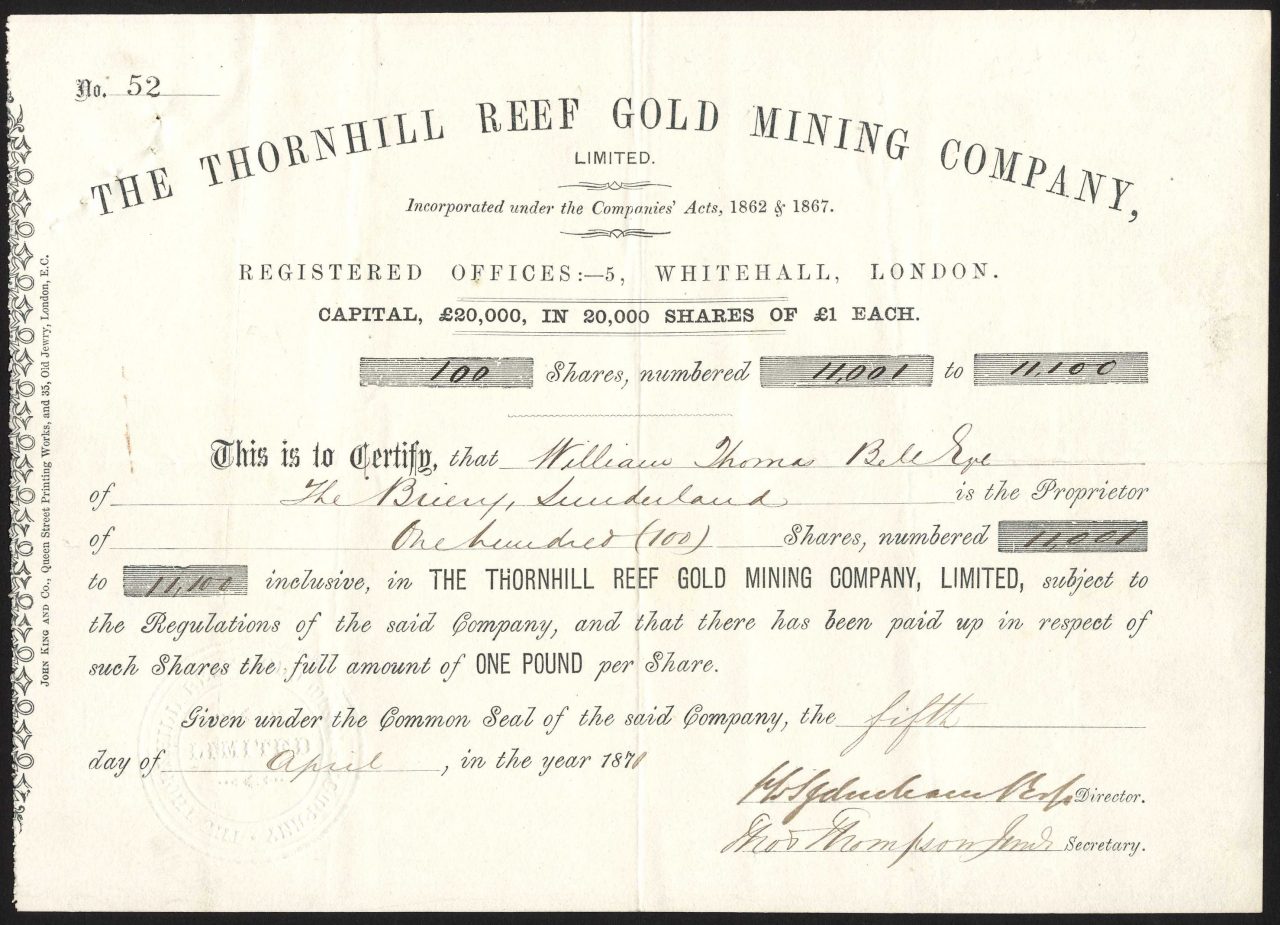 No. 52
THE THORNHILL REEF GOLD MINING COMPANY,
LIMITED.
Incorporated under the Companies' Acts, 1862 & 1867.
REGISTERED OFFICES:—5, WHITEHALL, LONDON.
CAPITAL, £20,000, IN 20,000 SHARES OF £1 EACH.
100 Shares, numbered 11,001 to 11,100
This is to Certify, that William Thomas Bell Esqe
of The Briery, Sunderland is the Proprietor
of One hundred (100) Shares, numbered 11,001
to 11,100 inclusive, in THE THORNHILL REEF GOLD MINING COMPANY, LIMITED, subject to
the Regulations of the said Company, and that there has been paid up in respect of
such Shares the full amount of ONE POUND per Share.
Given under the Common Seal of the said Company, the fifth
day of April, in the year 187
Director.
Thos Thompson Secretary.
JOHN KING AND CO., Queen Street Printing Works, and 35, Old Jewry, London, E.C.
LIMITED